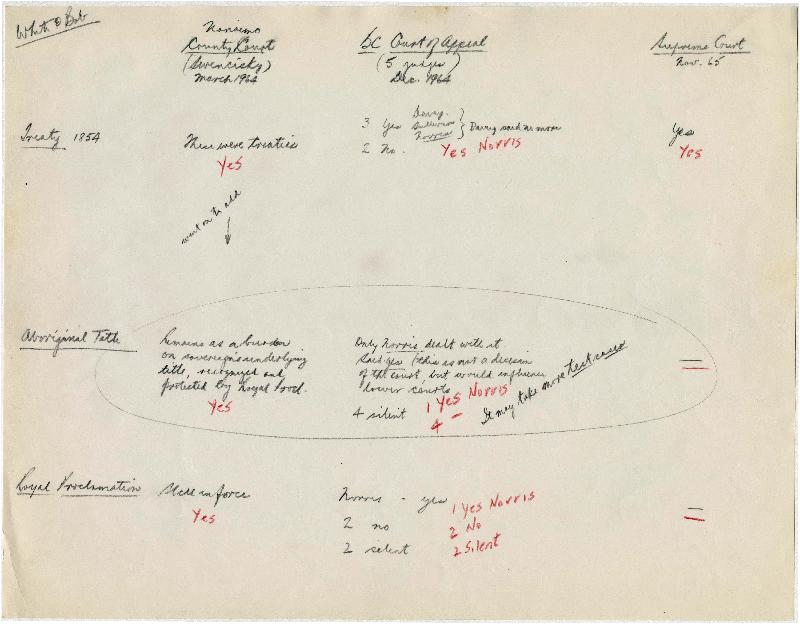 White & Bob
Nanaimo
County Court
(Swencisky)
March 1964
BC Court of Appeal
(5 judges)
Dec. 1964
Supreme Court
Nov. 65
Treaty 1854
These were treaties
Yes
3 Yes
Davey.
Sullivan
Norris
Davey said no more
2 No.
Yes Norris
Yes
Yes
went on to add
Aboriginal Title
Remains as a burden
on sovereign's underlying
title, recognized and
protected by Royal Procl.
Yes
Only Norris dealt with it
Said yes (this is not a decision
of the court but would influence
lower courts
4 silent
1 Yes Norris
4 –
It may take more test cases
=
Royal Proclamation
Still in force
Yes
Norris - yes
2 no
2 silent
1 yes Norris
2 No
2 Silent
=